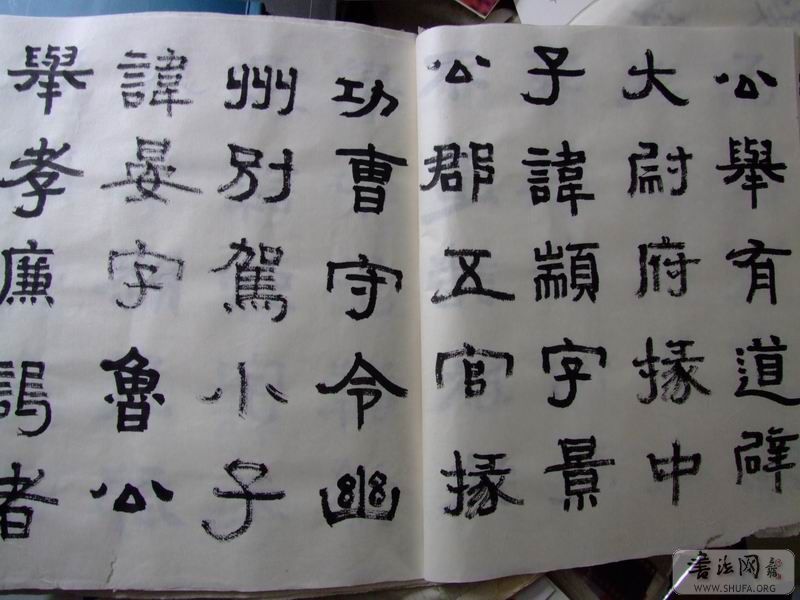 公舉有道辟
大尉府掾中
子諱顓字景
公郡五官掾
功曹守令幽
州別駕小子
諱晏字魯公
舉孝廉謁者
书法网
WWW.SHUFA.ORG